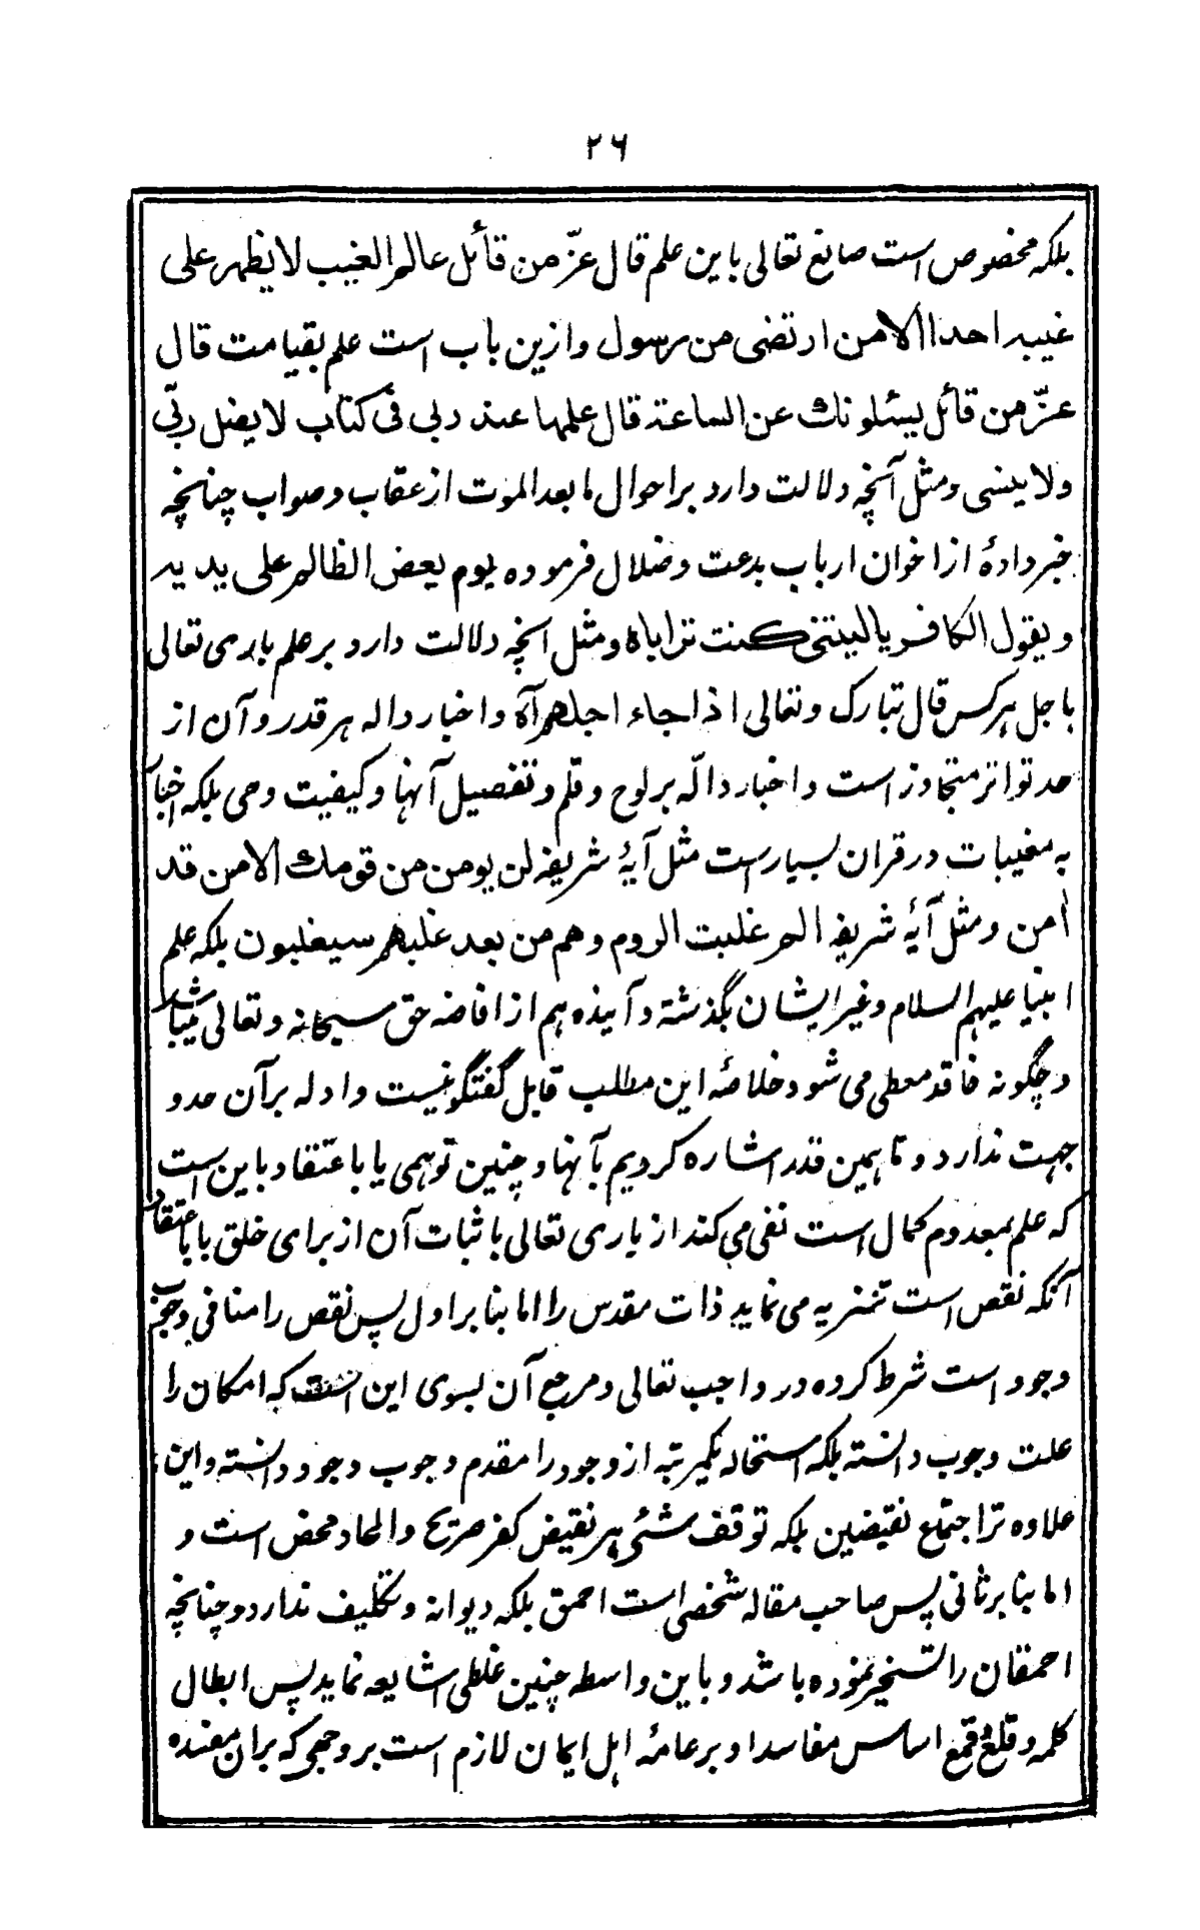 ۲۶
بلکه مخصوص است صانع تعالی باین علم قال عزّ من قائل عالم الغیب لا یظهر علی
غیبه احدا الا من ارتضی من رسول و ازین باب است علم بقیامت قال
عزّ من قائل یسئلونك عن الساعة قال علمها عند ربی فی کتاب لا یضل ربّی
ولا ینسی و مثل آنچه دلالت دارد بر احوال ما بعد الموت از عقاب و صواب چنانچه
خبر دادهٔ از اخوان ارباب بدعت و ضلال فرموده یوم یعض الظالم علی یدیه
و یقول الکافر یا لیتنی کنت ترابا و مثل آنچه دلالت دارد بر علم باری تعالی
باجل هر کس قال تبارک و تعالی اذا جاء اجلهم آه و اخبار داله هر قدر و آن از
حد تواتر متجاوز است و اخبار دالّه بر لوح و قلم و تفصیل آنها و کیفیت وحی بلکه اخبار
به مغیبات در قران بسیار است مثل آیهٔ شریفه لن یومن من قومك الا من قد
اٰمن و مثل آیهٔ شریفه الم غلبت الروم و هم من بعد غلبهم سیغلبون بلکه علم
انبیا علیهم السلام و غیر ایشان بگذشته و آینده هم از افاضه حق سبحانه و تعالی میباشد
و چگونه فاقد معطی می شود خلاصهٔ این مطلب قابل گفتگو نیست و ادله بر آن حد و
جهت ندارد و تا همین قدر اشاره کردیم بآنها و چنین توهمی یا با عتقاد باین است
که علم بمعدوم کمال است نفی می کند از باری تعالی با ثبات آن از برای خلق یا باعتقاد
آنکه نقص است تنزیه می نماید ذات مقدس را اما بنا بر اول پس نقص را منافی وجوب
وجود است شرط کرده در واجب تعالی و مرجع آن بسوی این است که امکان را
علت وجوب دانسته بلکه استحاله بکمرتبه از وجود را مقدم وجوب وجود دانسته و این
علاوه تر اجتماع نقیضین بلکه توقف شئی بر نقیض کفر صریح و الحاد محض است و
اما بنا بر ثانی پس صاحب مقاله شخصی است احمق بلکه دیوانه و تکلیف ندارد و چنانچه
احمقان را تسخیر نموده باشد و باین واسطه چنین غلطی اشایعه نماید پس ابطال
کلمه و قلع و قمع اساس مفاسد او بر عامهٔ اهل ایمان لازم است بر وجهی که بران مفسده